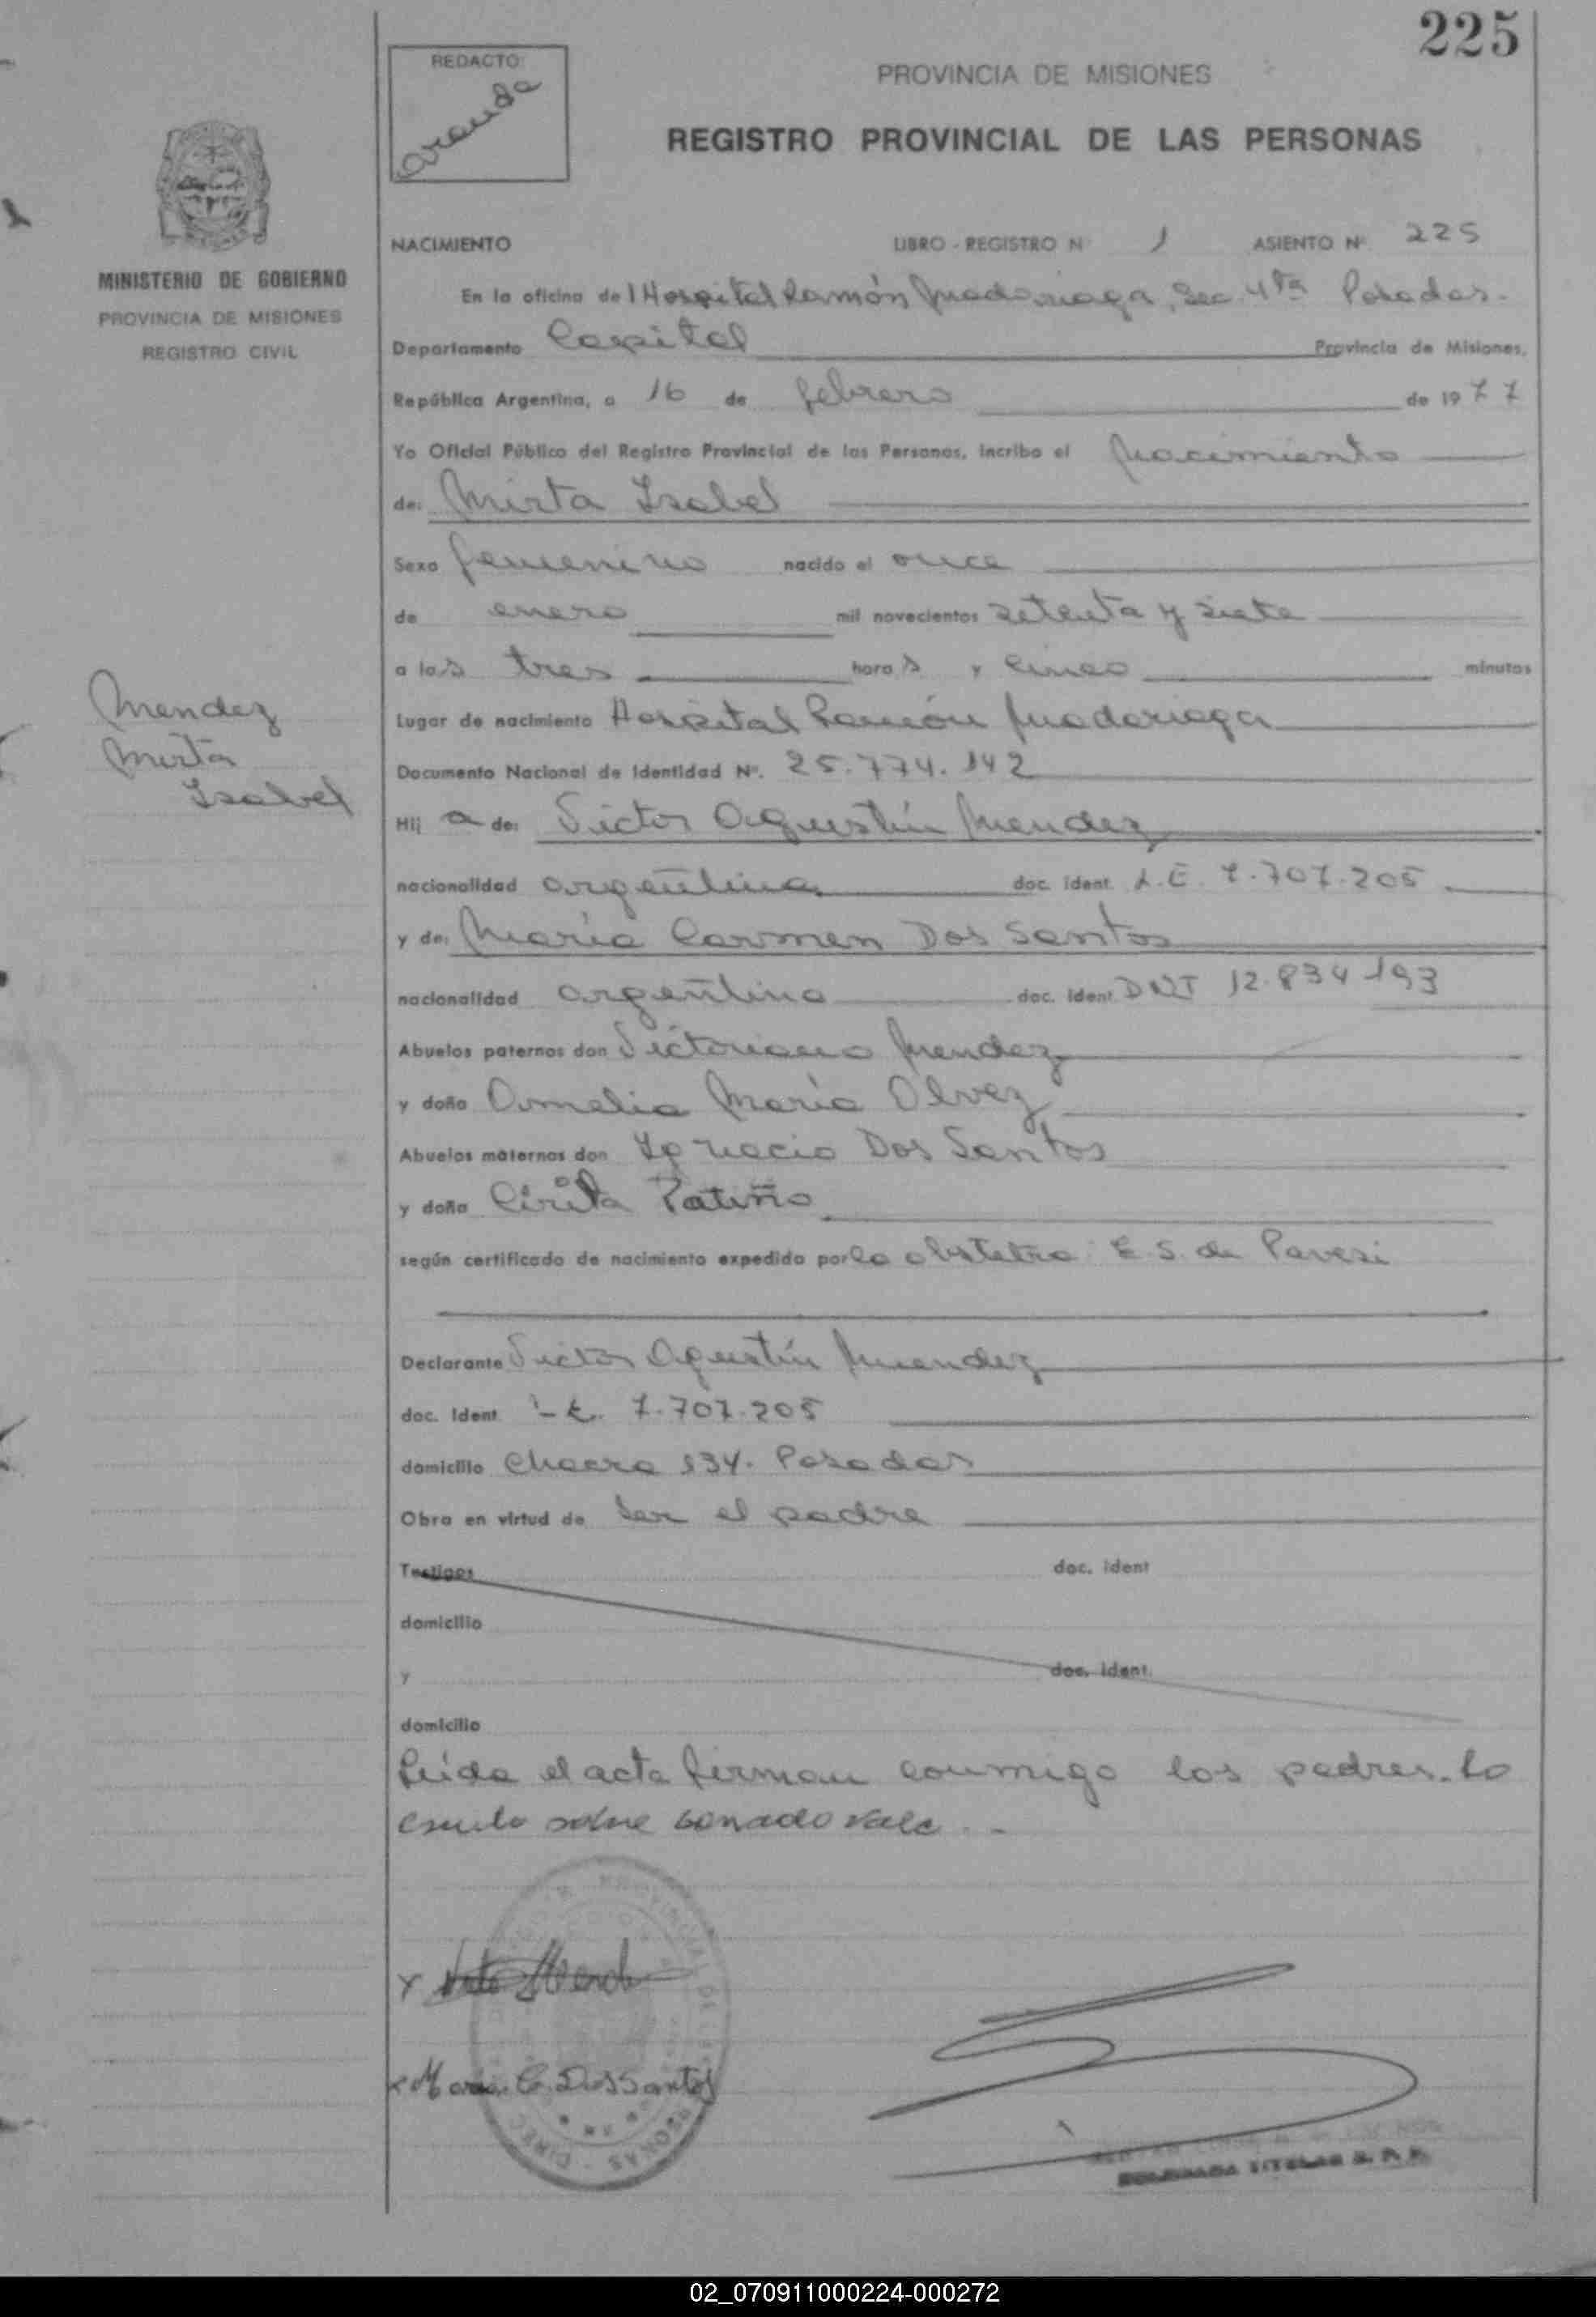 225
REDACTO:
Aranda
PROVINCIA DE MISIONES
REGISTRO PROVINCIAL DE LAS PERSONAS
MINISTERIO DE GOBIERNO
PROVINCIA DE MISIONES
REGISTRO CIVIL
NACIMIENTO LIBRO - REGISTRO N° 1 ASIENTO N° 225
En la oficina del Hospital Ramón Madariaga, Sec. 4ta Posadas.
Departamento Capital Provincia de Misiones,
República Argentina, a 16 de febrero de 1977
Yo Oficial Público del Registro Provincial de las Personas, incribo el Nacimiento
de: Mirta Isabel
Sexo femenino nacido el once
de enero mil novecientos setenta y siete
a las tres horas y cinco minutos
Mendez
Mirta
Isabel
Lugar de nacimiento Hospital Ramón Madariaga
Documento Nacional de Identidad N°. 25.774.142
Hij a de: Victor Agustín Mendez
nacionalidad argentina doc. Ident. L.E. 7.707.205
y de: María Carmen Dos Santos
nacionalidad argentina doc. Ident DNI 12.834.193
Abuelos paternos don Victoriano Mendez
y doña Amelia María Olvez
Abuelos maternos don Ignacio Dos Santos
y doña Cirila Patiño
según certificado de nacimiento expedido por la obstetra: E. S. de Pavesi
Declarante Victor Agustín Mendez
doc. Ident. L.E. 7.707.205
domicilio Chacra 134. Posadas
Obra en virtud de ser el padre
Testigos doc. ident
domicilio
y doc. ident.
domicilio
Leida el acta firman conmigo los padres. Lo
escrito sobre borrado vale. -
x Mendez
x Maria C. Dos Santos
TITULAR R. P. P.
02_070911000224-000272